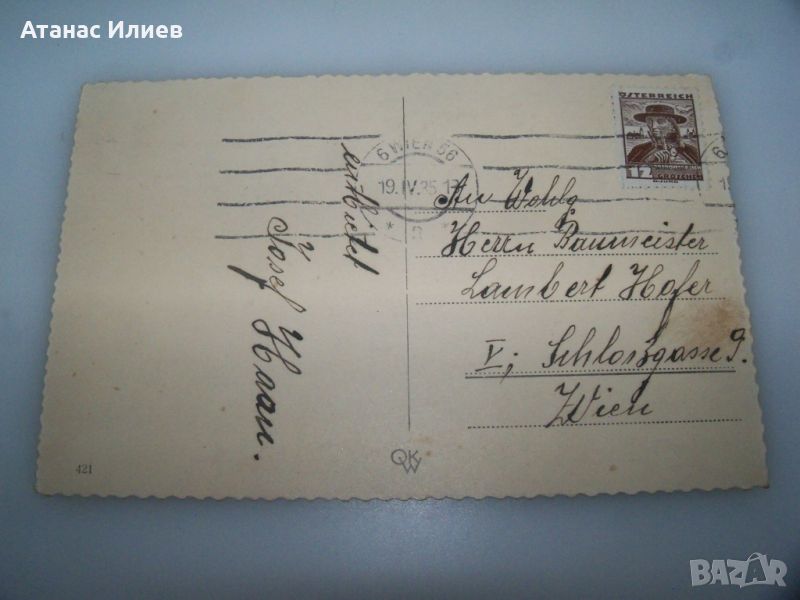 Атанас Илиев
ÖSTERREICH
12
GROSCHEN
6 WIEN 56
19.IV.35
An Wohlg
Herrn Baumeister
Lambert Hofer
V; Schlossgasse 9.
Wien
Josef Haan.
421
QKW
BAZAR